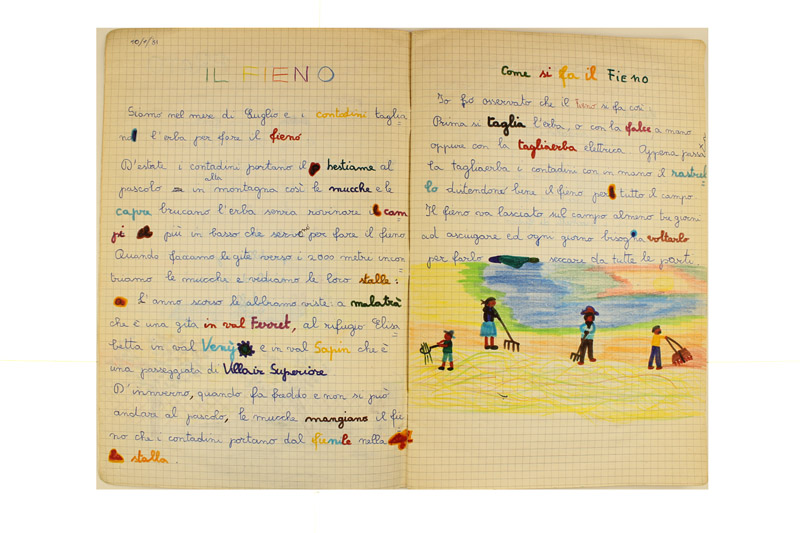 IL FIENO
Siamo nel mese di Luglio e i contadini taglia
no l'erba per fare il fieno
D'estate i contadini portano il bestiame al
pascolo alta in montagna così le mucche e le
capre brucano l'erba senza rovinare i cam
pi più in basso che servono per fare il fieno
Quando facciamo le gite verso i 2000 metri incon
triamo le mucche e vediamo le loro stalle:
l'anno scorso le abbiamo viste: a malatrà
che è una gita in val Ferret, al rifugio Elisa
betta in val Veny e in val Sapin che è
una passeggiata di Villair Superiore
D'inverno, quando fa freddo e non si può
andare al pascolo, le mucche mangiano il fie
no che i contadini portano dal fienile nella
stalla.
Come si fa il Fieno
Io ho osservato che il fieno si fa così:
Prima si taglia l'erba, o con la falce a mano
oppure con la tagliaerba elettrica. Appena passa
la tagliaerba i contadini con in mano il rastrel
lo distendono bene il fieno per tutto il campo
Il fieno va lasciato sul campo almeno tre giorni
ad asciugare ed ogni giorno bisogna voltarlo
per farlo seccare da tutte le parti.